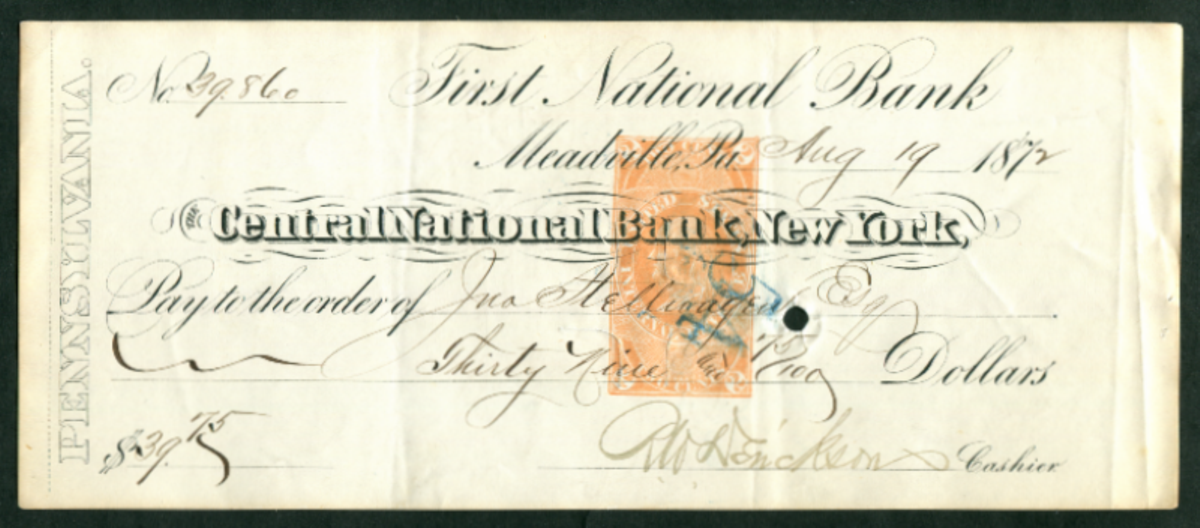 PENNSYLVANIA.
No. 39.860 First National Bank
Meadville, Pa. Aug 19 1872
THE Central National Bank, New York,
Pay to the order of Jno Esq
Thirty Nine and 75/100 Dollars
$39.75
Cashier